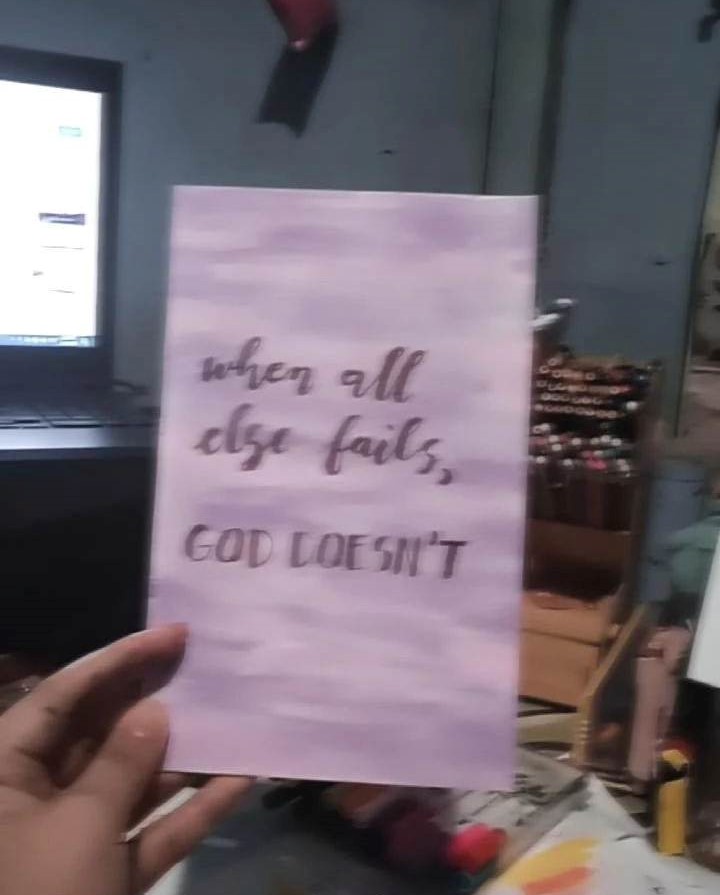 when all
else fails,
GOD DOESN'T